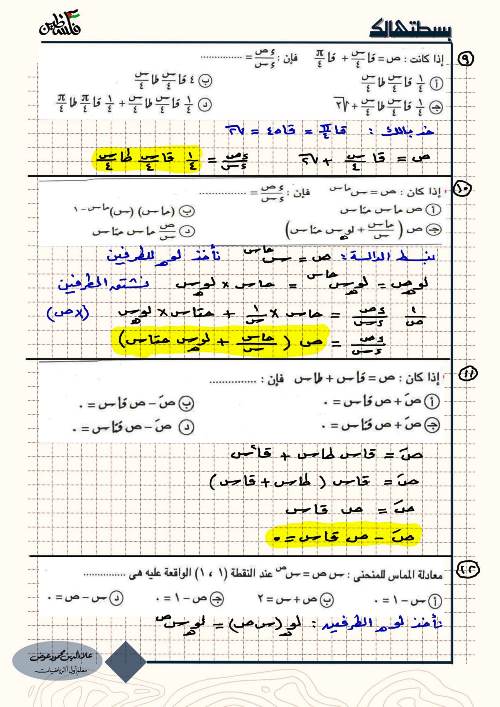 بسطتهالك
فلسطين
٩ إذا كانت : ص = قا س/٤ + قا π/٤ فإن : ءص/ءس = ..............
أ ١/٤ قا س/٤ طا س/٤
ب ٤ قا س/٤ طا س/٤
ج ١/٤ قا س/٤ طا س/٤ + √٢
د ١/٤ قا س/٤ طا س/٤ + ١/٤ قا π/٤ طا π/٤
خد بالك : قا π/٤ = قا ٤٥ = √٢
ص = قا س/٤ + √٢ ءص/ءس = ١/٤ قا س/٤ طا س/٤
١٠ إذا كان : ص = س^حاس فإن : ءص/ءس = ..............
أ ص حاس حتاس
ب (حاس) (س)^حاس-١
ج ص (حاس/س + لوهـ س حتاس)
د ص/س حاس حتاس
نبسط الدالة : ص = س^حاس نأخذ لوهـ للطرفين
لوهـ ص = لوهـ س^حاس = حاس × لوهـ س نشتق الطرفين
١/ص ءص/ءس = حاس × ١/س + حتاس × لوهـ س (× ص)
ءص/ءس = ص (حاس/س + لوهـ س حتاس)
١١ إذا كان : ص = قاس + طاس فإن : ..............
أ صَ + ص قاس = ٠
ب صَ - ص قاس = ٠
ج صَ + ص قتاس = ٠
د صَ - ص قتاس = ٠
صَ = قاس طاس + قا²س
صَ = قاس (طاس + قاس)
صَ = ص قاس
صَ - ص قاس = ٠
٢٣ معادلة المماس للمنحنى : س ص = س^ص عند النقطة (١ ، ١) الواقعة عليه هى ..............
أ س - ١ = ٠
ب ص + س = ٢
ج ص - ١ = ٠
د س - ص = ٠
نأخذ لوهـ الطرفين : لوهـ (س ص) = لوهـ س^ص
علاء الدين محمود عوض
معلم أول أ الرياضيات